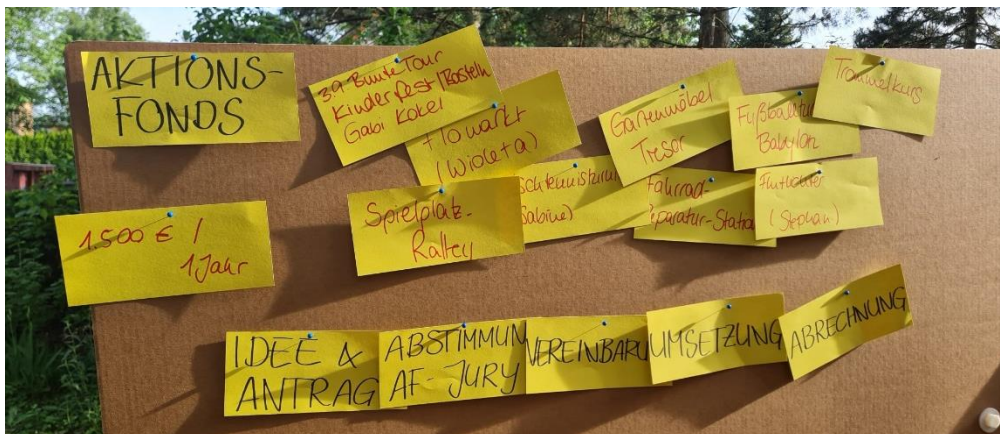 AKTIONS-
FONDS
39-Bunte Tour
Kinderfest/Basteln
Gabi Kokel
Flowarkt
(Wioleta)
Gartenmöbel
Tresor
Fußballtu
Babylon
Trommelkurs
1.500 € /
1 Jahr
Spielplatz-
Ralley
schtennisturn
Sabine)
Fahrrad-
eparatur-Statio
(Stephan)
IDEE &
ANTRAG
ABSTIMMUN
AF-JURY
VEREINBARU
UMSETZUNG
ABRECHNUNG